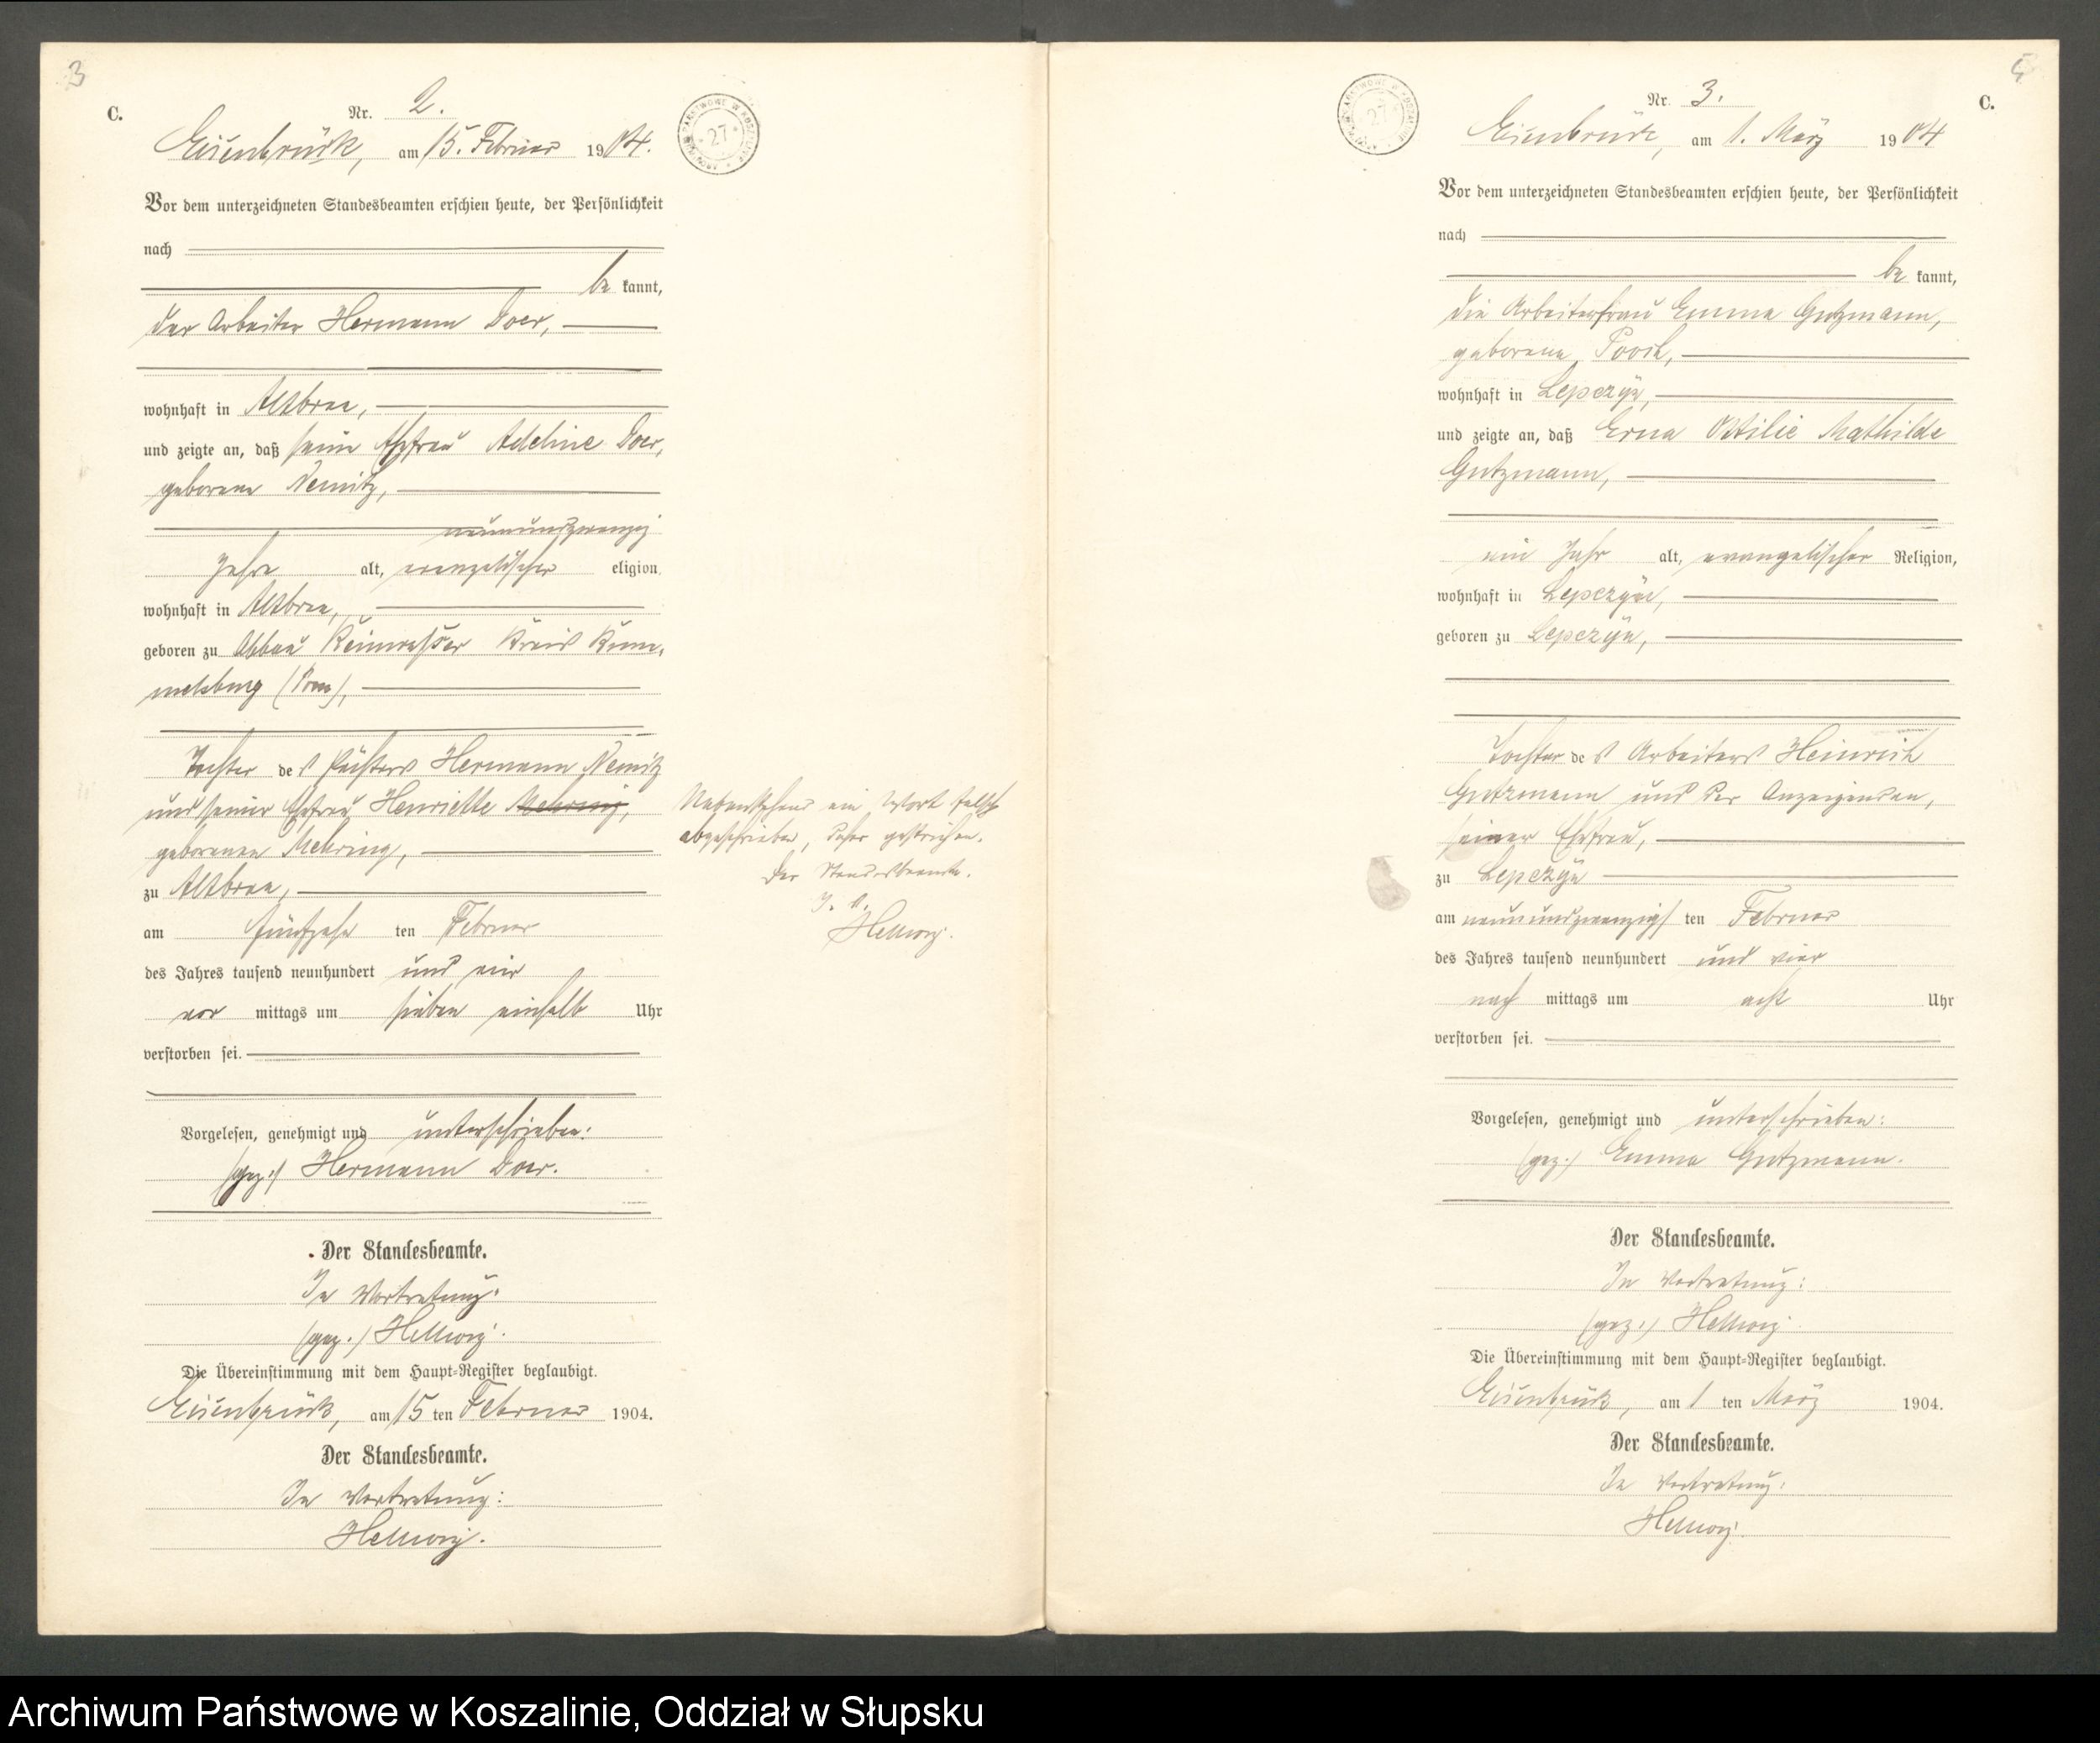 3
C.
Nr. 2.
Eisenbrück, am 15. Februar 1904.
Vor dem unterzeichneten Standesbeamten erschien heute, der Persönlichkeit
nach
be kannt,
der Arbeiter Hermann Doer,
wohnhaft in Altbraa,
und zeigte an, daß seine Ehefrau Adeline Doer,
geborene Nemitz,
neunundzwanzig
Jahre alt, evangelischer eligion,
wohnhaft in Altbraa,
geboren zu Abbau Reinwasser Kreis Rum-
melsburg (Pom),
Tochter des Pächters Hermann Nemitz
und seiner Ehefrau Henriette Mehring,
geborenen Mehring,
zu Altbraa,
am fünfzehn ten Februar
des Jahres tausend neunhundert und vier
vor mittags um sieben einhalb Uhr
verstorben sei.
Vorgelesen, genehmigt und unterschrieben:
(gez.) Hermann Doer.
Der Standesbeamte.
In Vertretung:
(gez.) Hellwig.
Die Übereinstimmung mit dem Haupt-Register beglaubigt.
Eisenbrück, am 15 ten Februar 1904.
Der Standesbeamte.
In Vertretung:
Hellwig.
27
Nebenstehend ein Wort falsch
abgeschrieben, daher gestrichen.
Der Standesbeamte.
I. V.
Hellwig.
5
C.
27
Nr. 3.
Eisenbrück, am 1. März 1904
Vor dem unterzeichneten Standesbeamten erschien heute, der Persönlichkeit
nach
be kannt,
die Arbeiterfrau Emma Gutzmann,
geborene
wohnhaft in Lepczyn,
und zeigte an, daß Erna Ottilie Mathilde
Gutzmann,
ein Jahr alt, evangelischer Religion,
wohnhaft in Lepczyn,
geboren zu Lepczyn,
Tochter des Arbeiters Heinrich
Gutzmann und der Anzeigenden,
seiner Ehefrau,
zu Lepczyn
am neunundzwanzigs ten Februar
des Jahres tausend neunhundert und vier
nach mittags um acht Uhr
verstorben sei.
Vorgelesen, genehmigt und unterschrieben:
(gez.) Emma Gutzmann.
Der Standesbeamte.
In Vertretung:
(gez.) Hellwig.
Die Übereinstimmung mit dem Haupt-Register beglaubigt.
Eisenbrück, am 1 ten März 1904.
Der Standesbeamte.
In Vertretung:
Hellwig.
Archiwum Państwowe w Koszalinie, Oddział w Słupsku